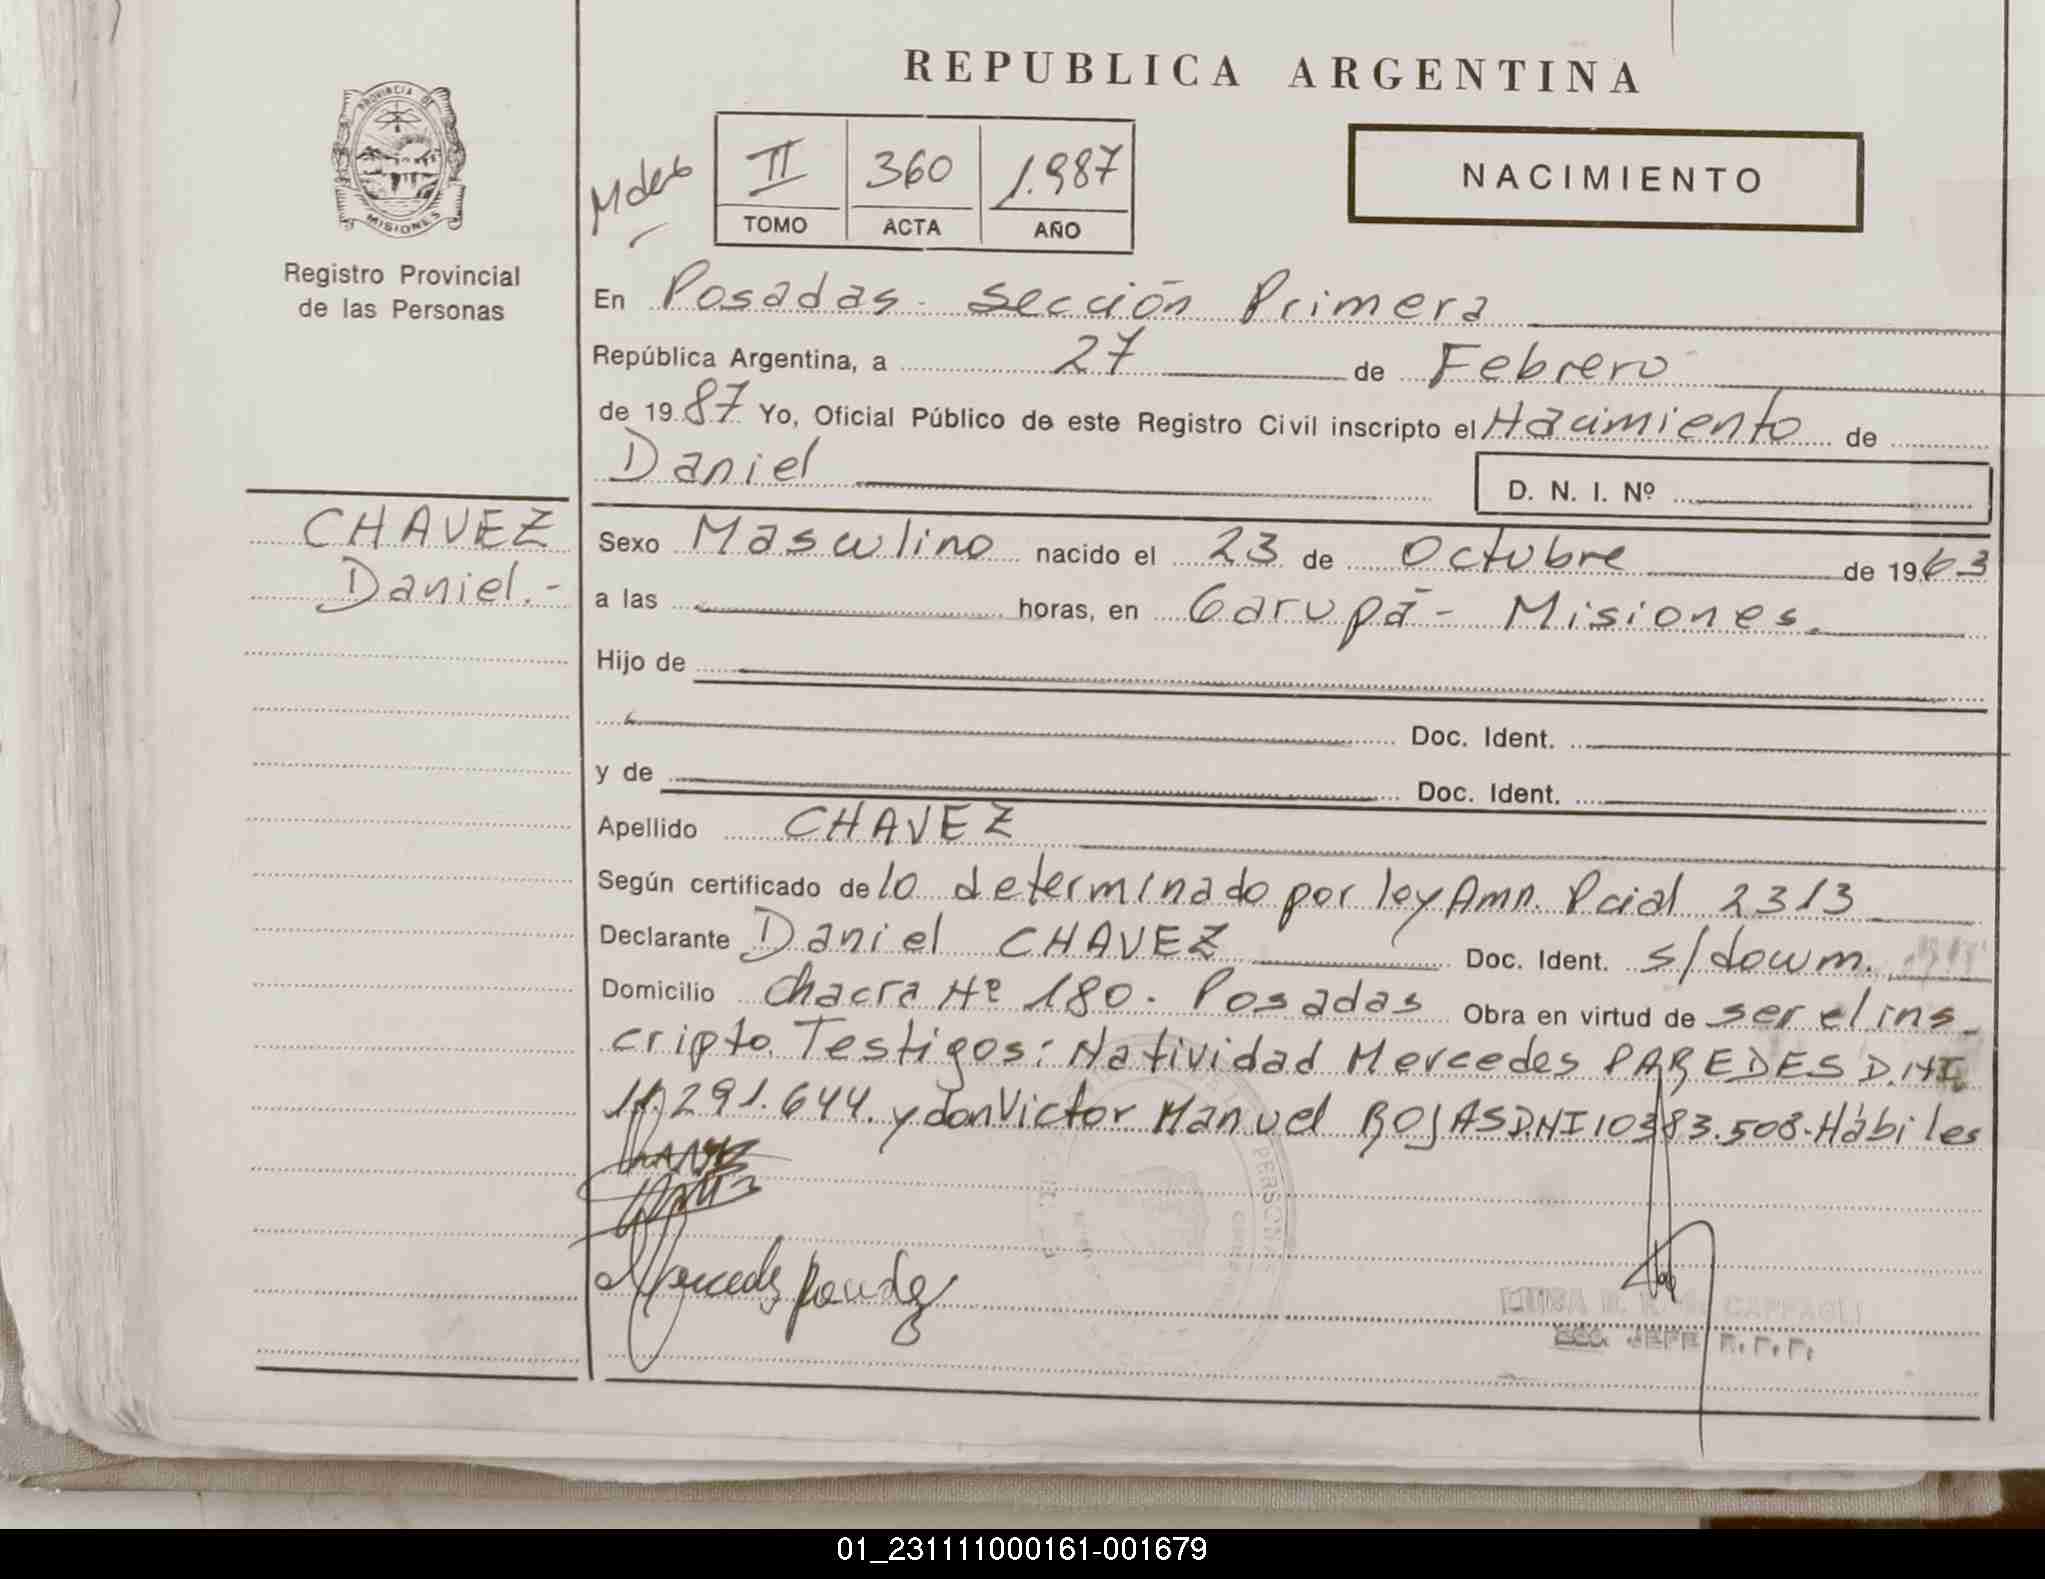 REPUBLICA ARGENTINA
PROVINCIA DE
MISIONES
Registro Provincial
de las Personas
II 360 1.987
TOMO ACTA AÑO
NACIMIENTO
En Posadas. Sección Primera
República Argentina, a 27 de Febrero
de 1987 Yo, Oficial Público de este Registro Civil inscripto el Nacimiento de
Daniel D. N. I. Nº
CHAVEZ
Daniel.-
Sexo Masculino nacido el 23 de Octubre de 1963
a las horas, en Garupá - Misiones.
Hijo de
Doc. Ident.
y de Doc. Ident.
Apellido CHAVEZ
Según certificado de lo determinado por ley Amn. Pcial 2313
Declarante Daniel CHAVEZ Doc. Ident. s/docum.
Domicilio Chacra Nº 180. Posadas Obra en virtud de ser el ins
cripto. Testigos: Natividad Mercedes PAREDES D.NI
11.291.644. y don Victor Manuel ROJAS DNI 10383.508. Hábiles
JEFE R.P.P.
01_231111000161-001679